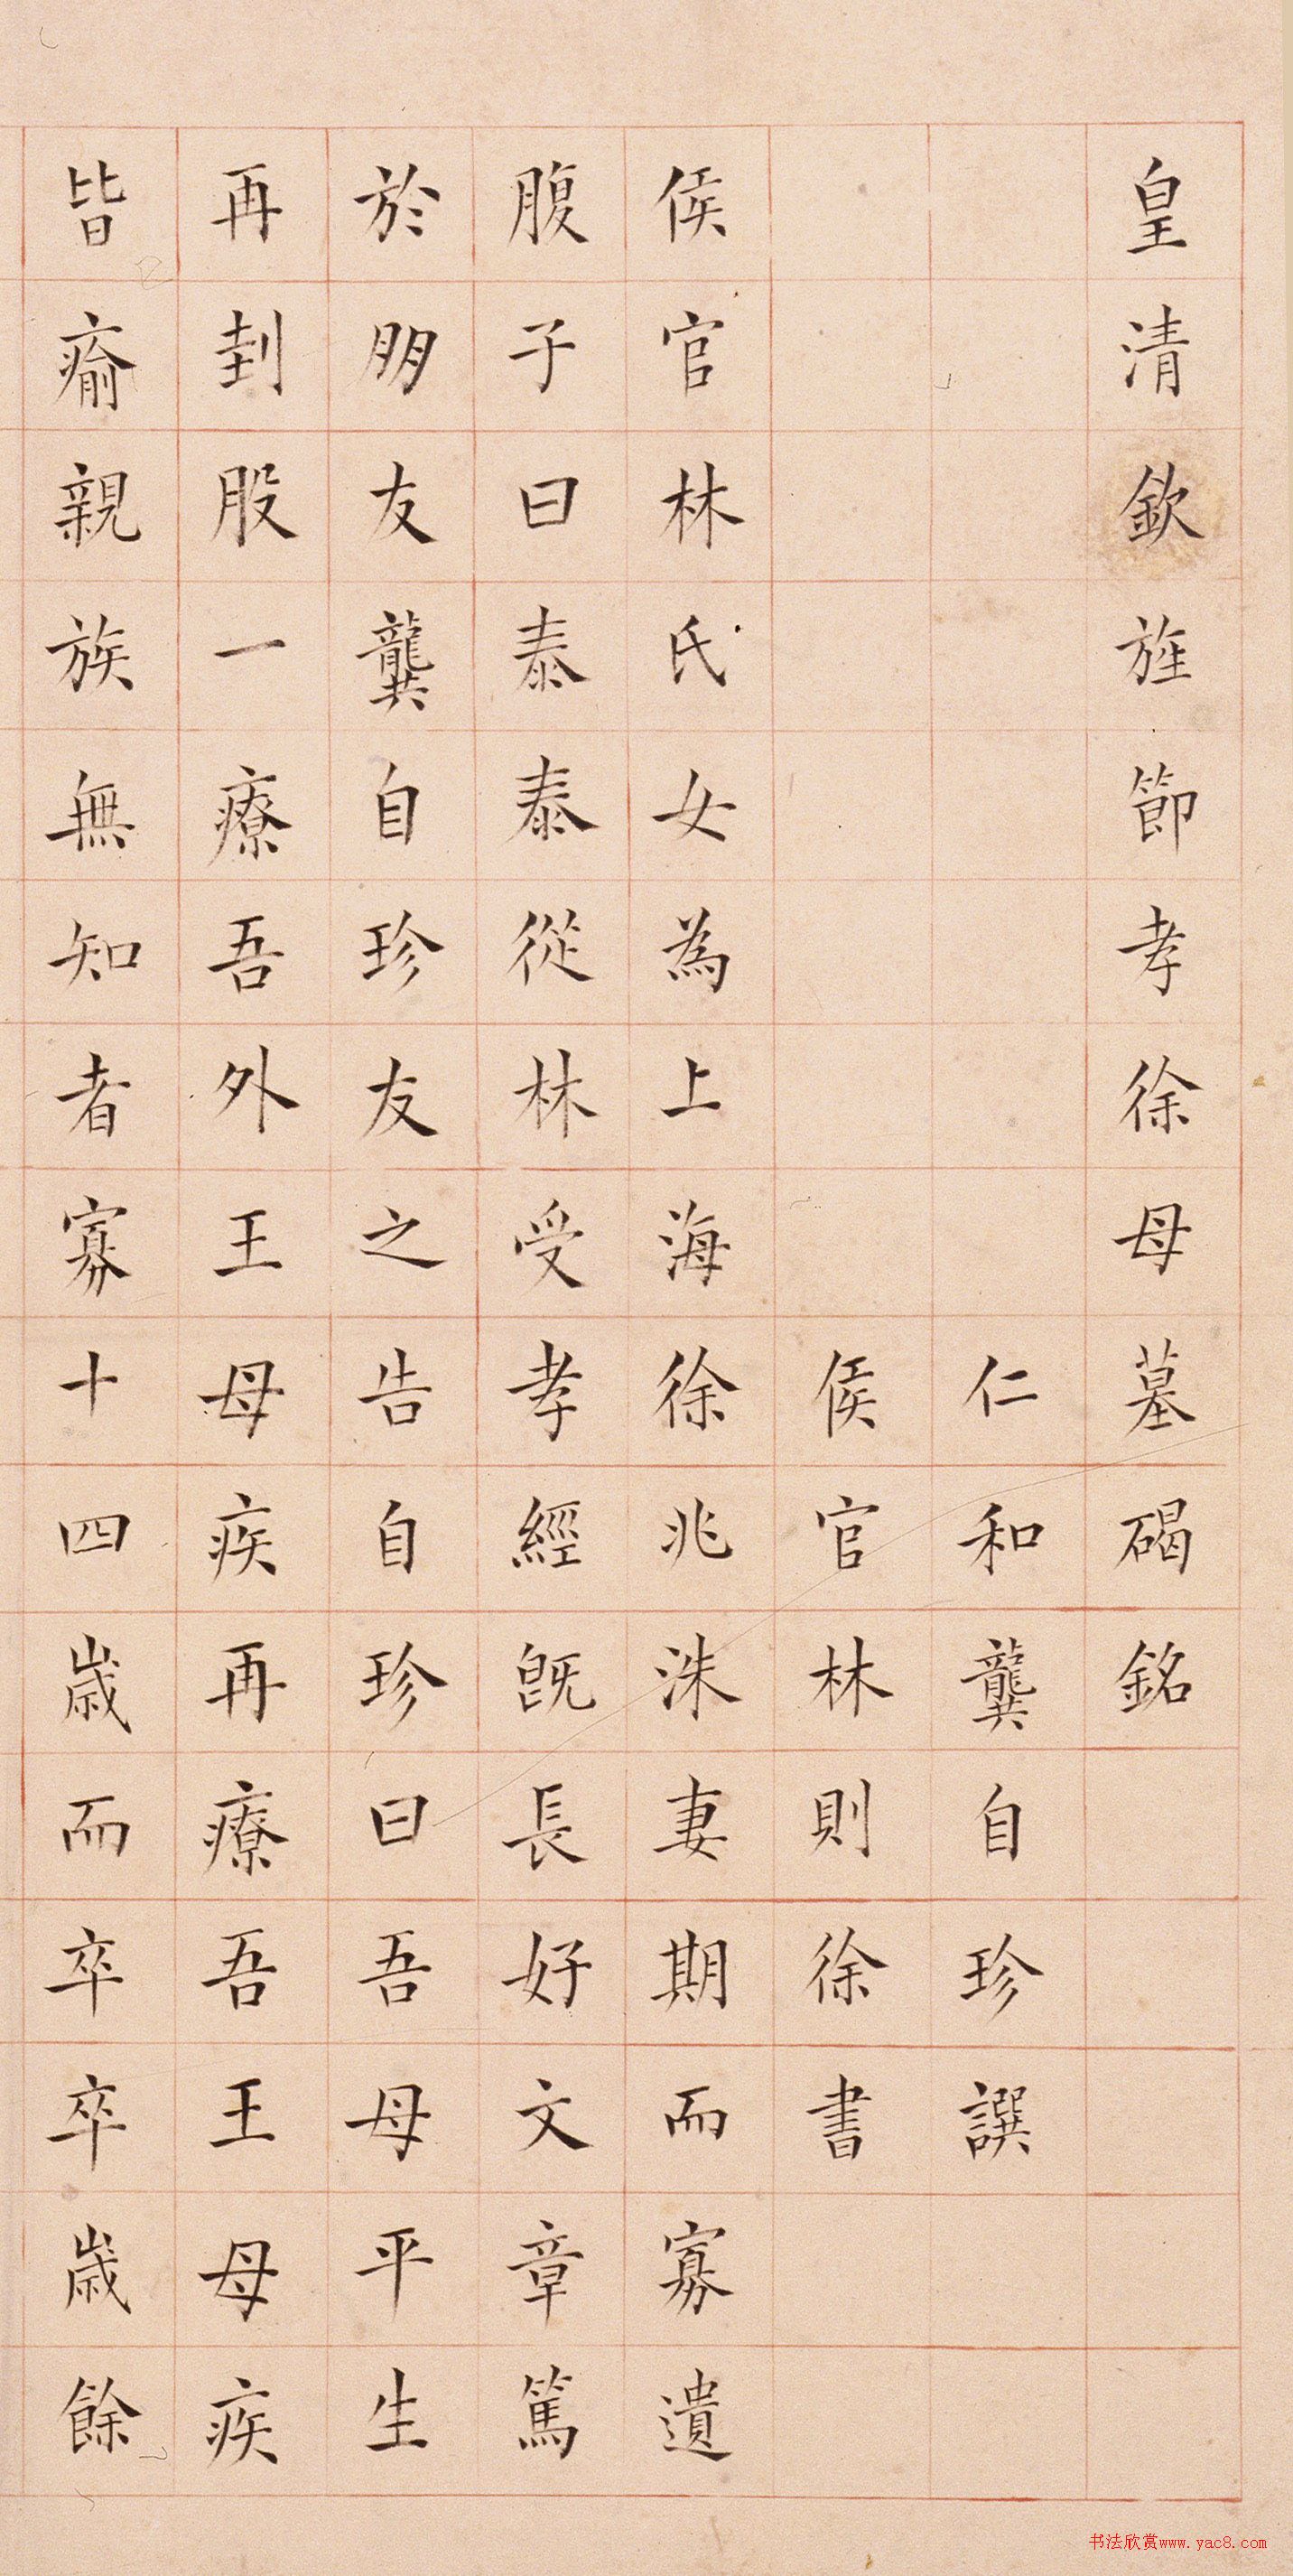 皇清欽旌節孝徐母墓碣銘
仁和龔自珍譔
侯官林則徐書
侯官林氏女為上海徐兆洙妻期而寡遺
腹子曰泰泰從林受孝經旣長好文章篤
於朋友龔自珍友之告自珍曰吾母平生
再刲股一療吾外王母疾再療吾王母疾
皆瘉親族無知者寡十四歲而卒卒歲餘
书法欣赏www.yac8.com